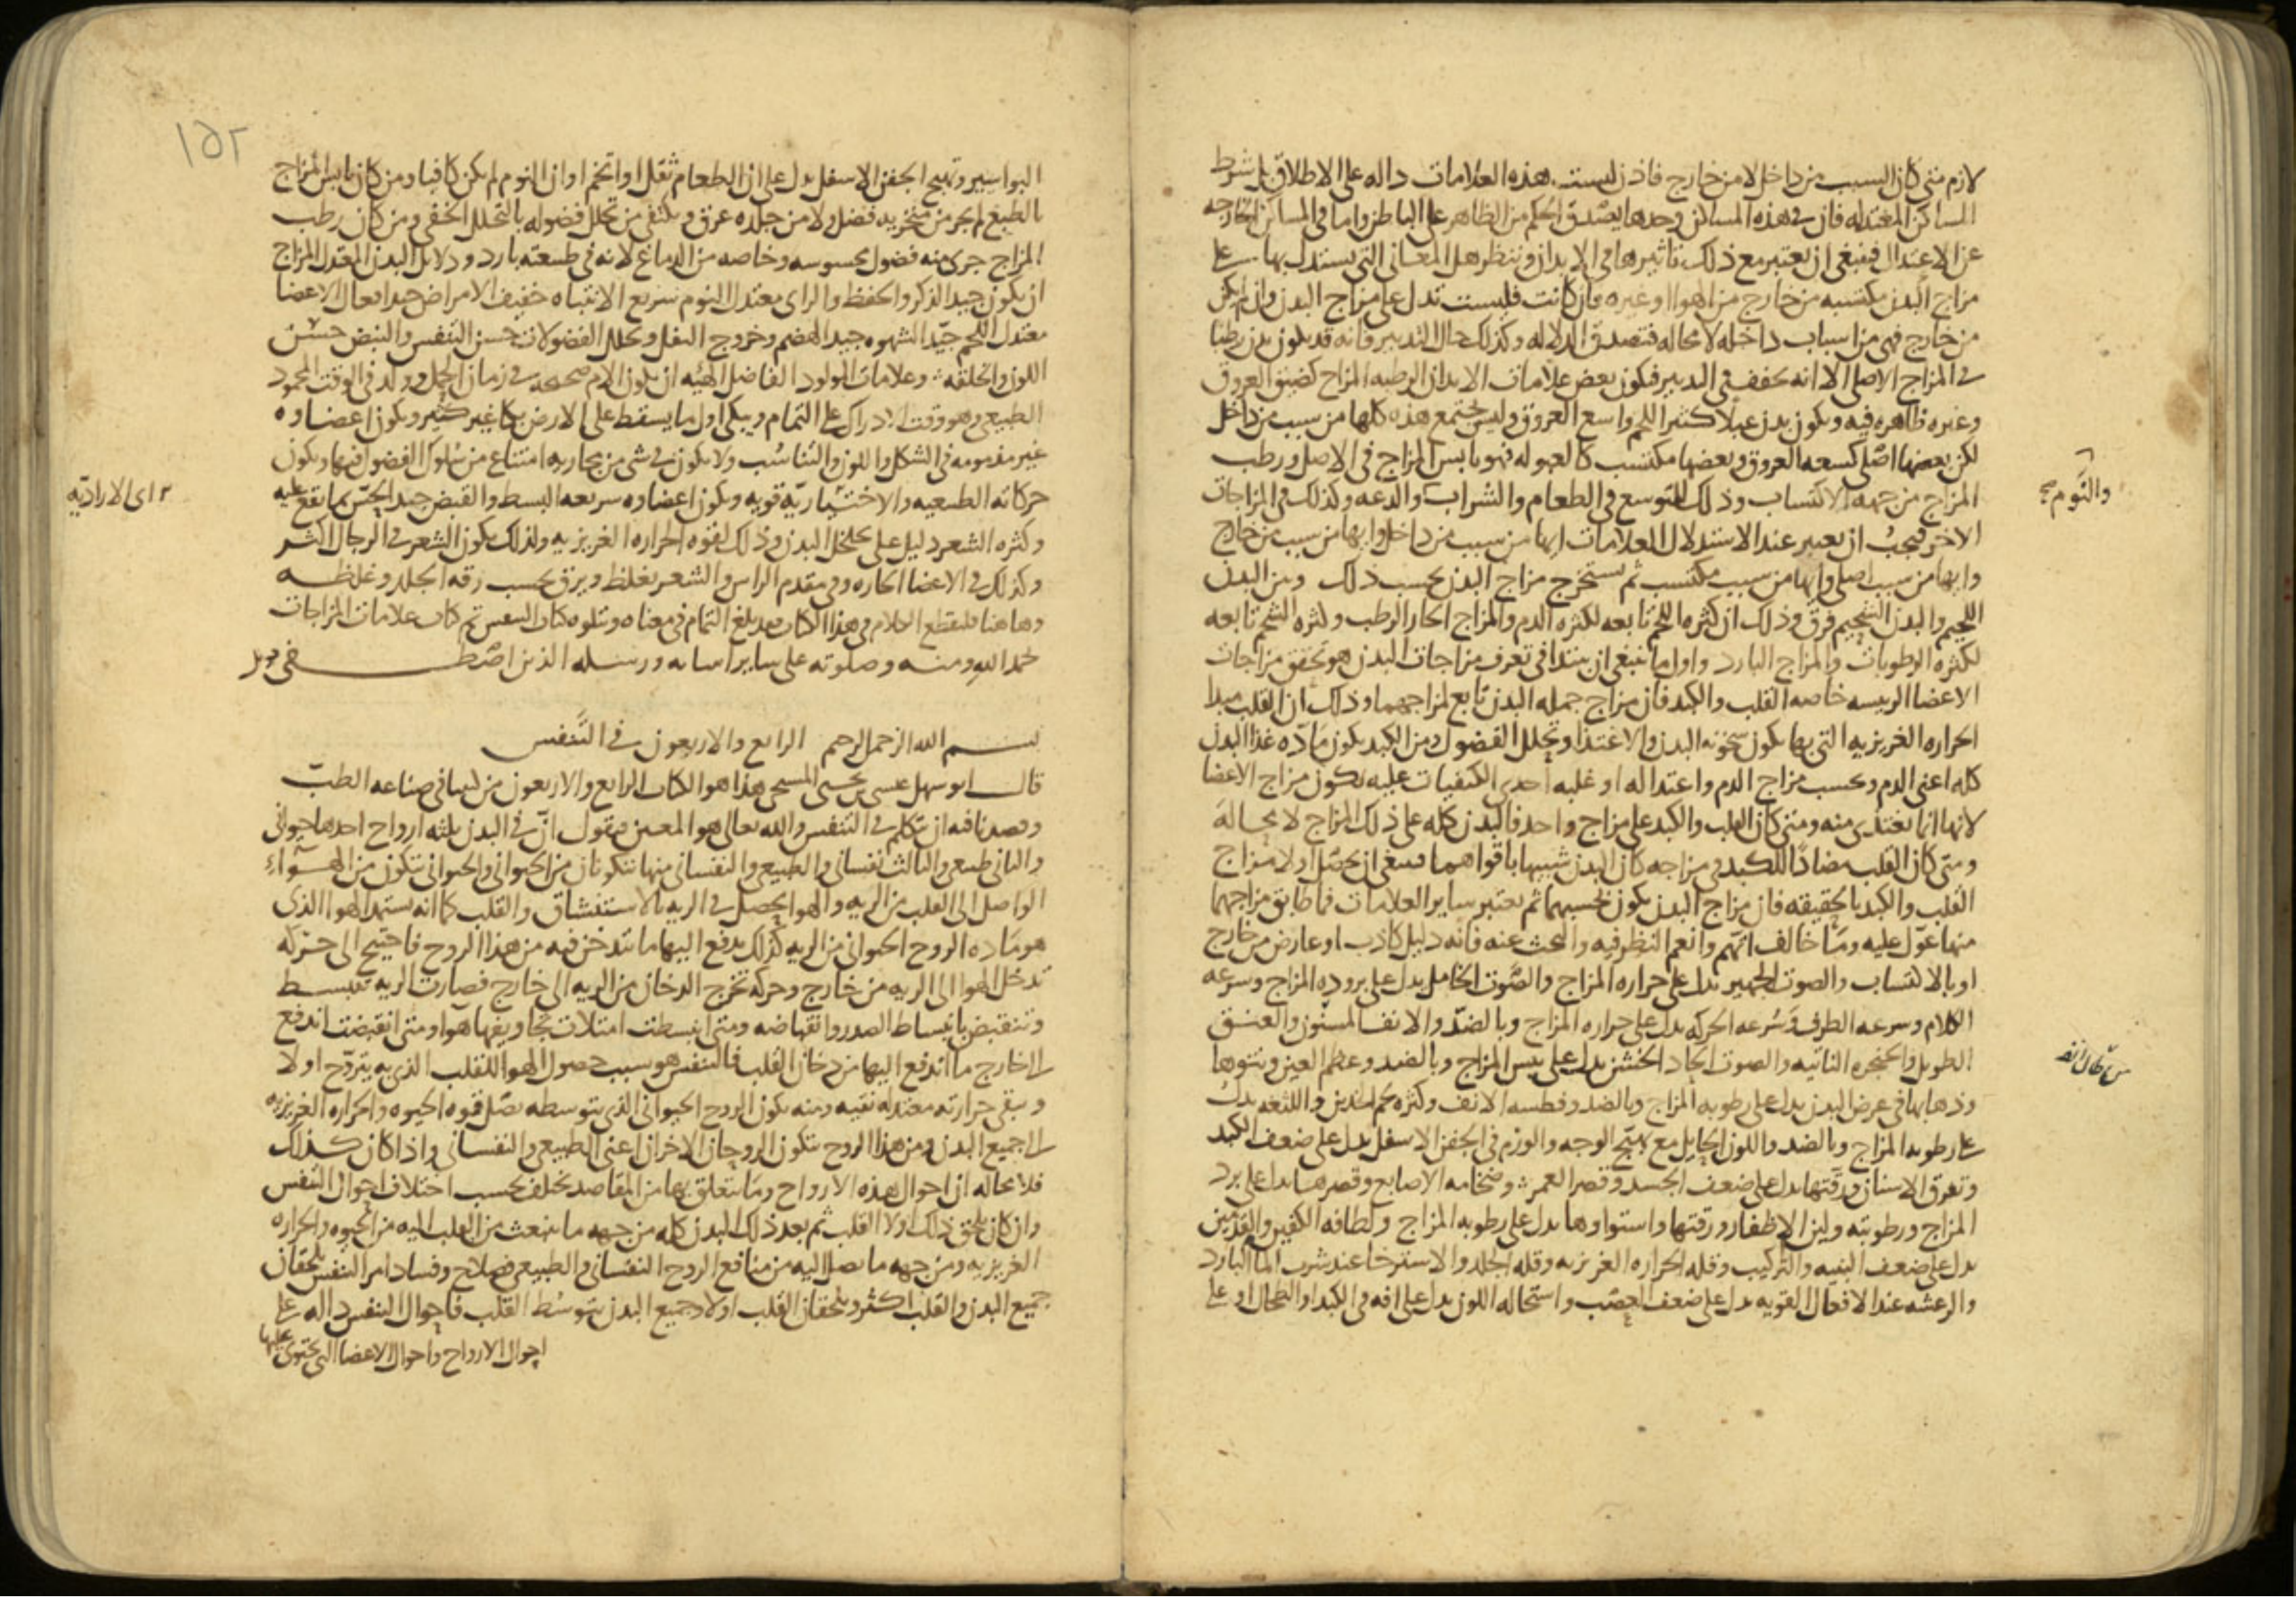 لازم متى كان السبب من داخل لا من خارج فاذن ليست هذه العلامات داله على الاطلاق بل بشرط
المساكن المعتدله فان في هذه المساكن وحدها يصدق الحكم من الظاهر على الباطن واما في المساكن الخارجه
عن الاعتدال فينبغي ان يعتبر مع ذلك تاثيرها في الابدان وننظر هل المعاني التي يستدل بها على
مزاج البدن مكتسبه من خارج من الهوا او غيره فان كانت فليست تدل على مزاج البدن وان لم يكن
من خارج فهي من اسباب داخله لا محاله فتصدق الدلاله وكذلك حال التدبير فانه قد يكون بدن رطبا
في المزاج الاصلي الا انه يجفف في التدبير فيكون بعض علامات الابدان الرطبه المزاج كضيق العروق
وغيره ظاهره فيه ويكون بدن عبلا كثير اللحم واسع العروق وليس تجتمع هذه كلها من سبب من داخل
لكن بعضها اصلي كسعه العروق وبعضها مكتسب كالعبوله فهو يابس المزاج في الاصل ورطب
المزاج من جهه الاكتساب وذلك للتوسع في الطعام والشراب والدعه وكذلك في المزاجات
والنوم صح
الاخر فيجب ان يعتبر عند الاستدلال العلامات ايها من سبب من داخل وايها من سبب من خارج
وايها من سبب اصلي وايها من سبب مكتسب ثم يستخرج مزاج البدن بحسب ذلك وبين البدن
اللحيم والبدن الشحيم فرق وذلك ان كثره اللحم تابعه لكثره الدم والمزاج الحار الرطب وكثره الشحم تابعه
لكثره الرطوبات والمزاج البارد واول ما ينبغي ان يبتدا في تعرف مزاجات البدن هو تحقق مزاجات
الاعضا الريسه خاصه القلب والكبد فان مزاج جمله البدن تابع لمزاجهما وذلك ان القلب مبدا
الحراره الغريزيه التي بها يكون سخونه البدن والاغتذا وتحلل الفضول ومن الكبد يكون ماده غذا البدن
كله اعني الدم وبحسب مزاج الدم واعتداله او غلبه احدى الكيفيات عليه يكون مزاج الاعضا
لانها انما تغتذي منه ومتى كان القلب والكبد على مزاج واحد فالبدن كله على ذلك المزاج لا محاله
ومتى كان القلب مضادا للكبد في مزاجه كان البدن شبيها باقواهما فينبغي ان يحصل اولا مزاج
القلب والكبد بالحقيقه فان مزاج البدن يكون بحسبهما ثم يعتبر ساير العلامات فما طابق مزاجهما
منها عول عليه وما خالف اتهم وانعم النظر فيه والبحث عنه فانه دليل كاذب او عارض من خارج
او بالاكتساب والصوت الجهير يدل على حراره المزاج والصوت الخامل يدل على بروده المزاج وسرعه
الكلام وسرعه الطرف وسرعه الحركه يدل على حراره المزاج وبالضد والانف المسنون والعنق
الطويل والحنجره الناتيه والصوت الحاد الخشن يدل على يبس المزاج وبالضد وعظم العين ونتوها
وذهابها في عرض البدن يدل على رطوبه المزاج وبالضد وفطسه الانف وكثره لحم الخدين واللثغه يدل
على رطوبه المزاج وبالضد واللون الحايل مع تهبج الوجه والورم في الجفن الاسفل يدل على ضعف الكبد
وتفرق الاسنان ورقتها يدل على ضعف الجسد وقصر العمر وضخامه الاصابع وقصرها يدل على برد
المزاج ورطوبته ولين الاظفار ورقتها واستواوها يدل على رطوبه المزاج ولطافه الكفين والقدمين
يدل على ضعف البنيه والتركيب وقله الحراره الغريزيه وقله الجلد والاسترخا عند شرب الما البارد
والرعشه عند الافعال القويه يدل على ضعف العصب واستحاله اللون يدل على افه في الكبد او الطحال او على
١٥٢
البواسير وتهبج الجفن الاسفل يدل على ان الطعام ثقل او اتخم او ان النوم لم يكن كافيا ومن كان يابس المزاج
بالطبع لم يجر من منخريه فضل ولا من جلده عرق ويكتفي من تحلل فضوله بالتحلل الخفي ومن كان رطب
المزاج جرى منه فضول محسوسه وخاصه من الدماغ لانه في طبيعته بارد ودلايل البدن المعتدل المزاج
ان يكون جيد الذكر والحفظ والراى معتدل النوم سريع الانتباه خفيف الامراض جيد افعال الاعضا
معتدل اللحم جيد الشهوه جيد الهضم وخروج الثفل وتحلل الفضولات حسن التنفس والنبض حسن
اللون والخلقه وعلامات المولود الفاضل الهيه ان يكون الام صحيحه في زمان الحمل وولد في الوقت المحمود
الطبيعي وهو وقت الادراك على التمام ويبكي اول ما يسقط على الارض بكا غير كثير ويكون اعضاوه
غير مذمومه في الشكل واللون والتناسب ولا يكون في شي من مجاريه امتناع من سلوك الفضول فيها ويكون
حركاته الطبيعيه والاختياريه قويه ويكون اعضاوه سريعه البسط والقبض جيد الحس بما يقع عليه
اى الاراديه
وكثره الشعر دليل على تخلخل البدن وذلك لقوه الحراره الغريزيه ولذلك يكون الشعر في الرجال اكثر
وكذلك في الاعضا الحاره وفي مقدم الراس والشعر يغلظ ويرق بحسب رقه الجلد وغلظه
وهاهنا فليقطع الكلام في هذا الكتاب فقد بلغ التمام في معناه ويتلوه كتاب التنفس تم كتاب علامات المزاجات
بحمد الله ومنه وصلوته على ساير انبيايه ورسله الذين اصطفى
بسم الله الرحمن الرحيم الرابع والاربعون في التنفس
قال ابو سهل عيسى بن يحيى المسيحي هذا هو الكتاب الرابع والاربعون من كتبنا في صناعه الطب
وقصدنا فيه ان نتكلم في التنفس والله تعالى هو المعين فنقول ان في البدن ثلثه ارواح احدها حيواني
والثاني طبيعي والثالث نفساني والطبيعي والنفساني منها يتكونان من الحيواني والحيواني يتكون من الهواء
الواصل الى القلب من الريه والهوا يحصل في الريه بالاستنشاق والقلب كما انه يستمد الهوا الذي
هو ماده الروح الحيواني من الريه كذلك يدفع اليها ما تدخن فيه من هذا الروح فاحتيج الى حركه
تدخل الهوا الى الريه من خارج وحركه تخرج الدخان من الريه الى خارج فصارت الريه تنبسط
وتنقبض بانبساط الصدر وانقباضه ومتى انبسطت امتلات تجاويفها هوا ومتى انقبضت اندفع
الى خارج ما اندفع اليها من دخان القلب فالتنفس هو سبب حصول الهوا للقلب الذي به يتروح اولا
ويبقى حرارته معتدله نقيه ومنه يكون الروح الحيواني الذي بتوسطه تصل قوه الحيوه والحراره الغريزيه
الى جميع البدن ومن هذا الروح يتكون الروحان الاخران اعني الطبيعي والنفساني واذا كان كذلك
فلا محاله ان احوال هذه الارواح وما يتعلق بها من المقاصد تختلف بحسب اختلاف احوال التنفس
وان كان يلحق ذلك اولا القلب ثم بعد ذلك البدن كله من جهه ما ينبعث من القلب اليه من الحيوه والحراره
الغريزيه ومن جهه ما يصل اليه من منافع الروح النفساني والطبيعي فصلاح وفساد امر التنفس يلحقان
جميع البدن والقلب اكثر ويلحقان القلب اولا وجميع البدن بتوسط القلب فاحوال التنفس داله على
احوال الارواح واحوال الاعضا التي تحتوى عليها